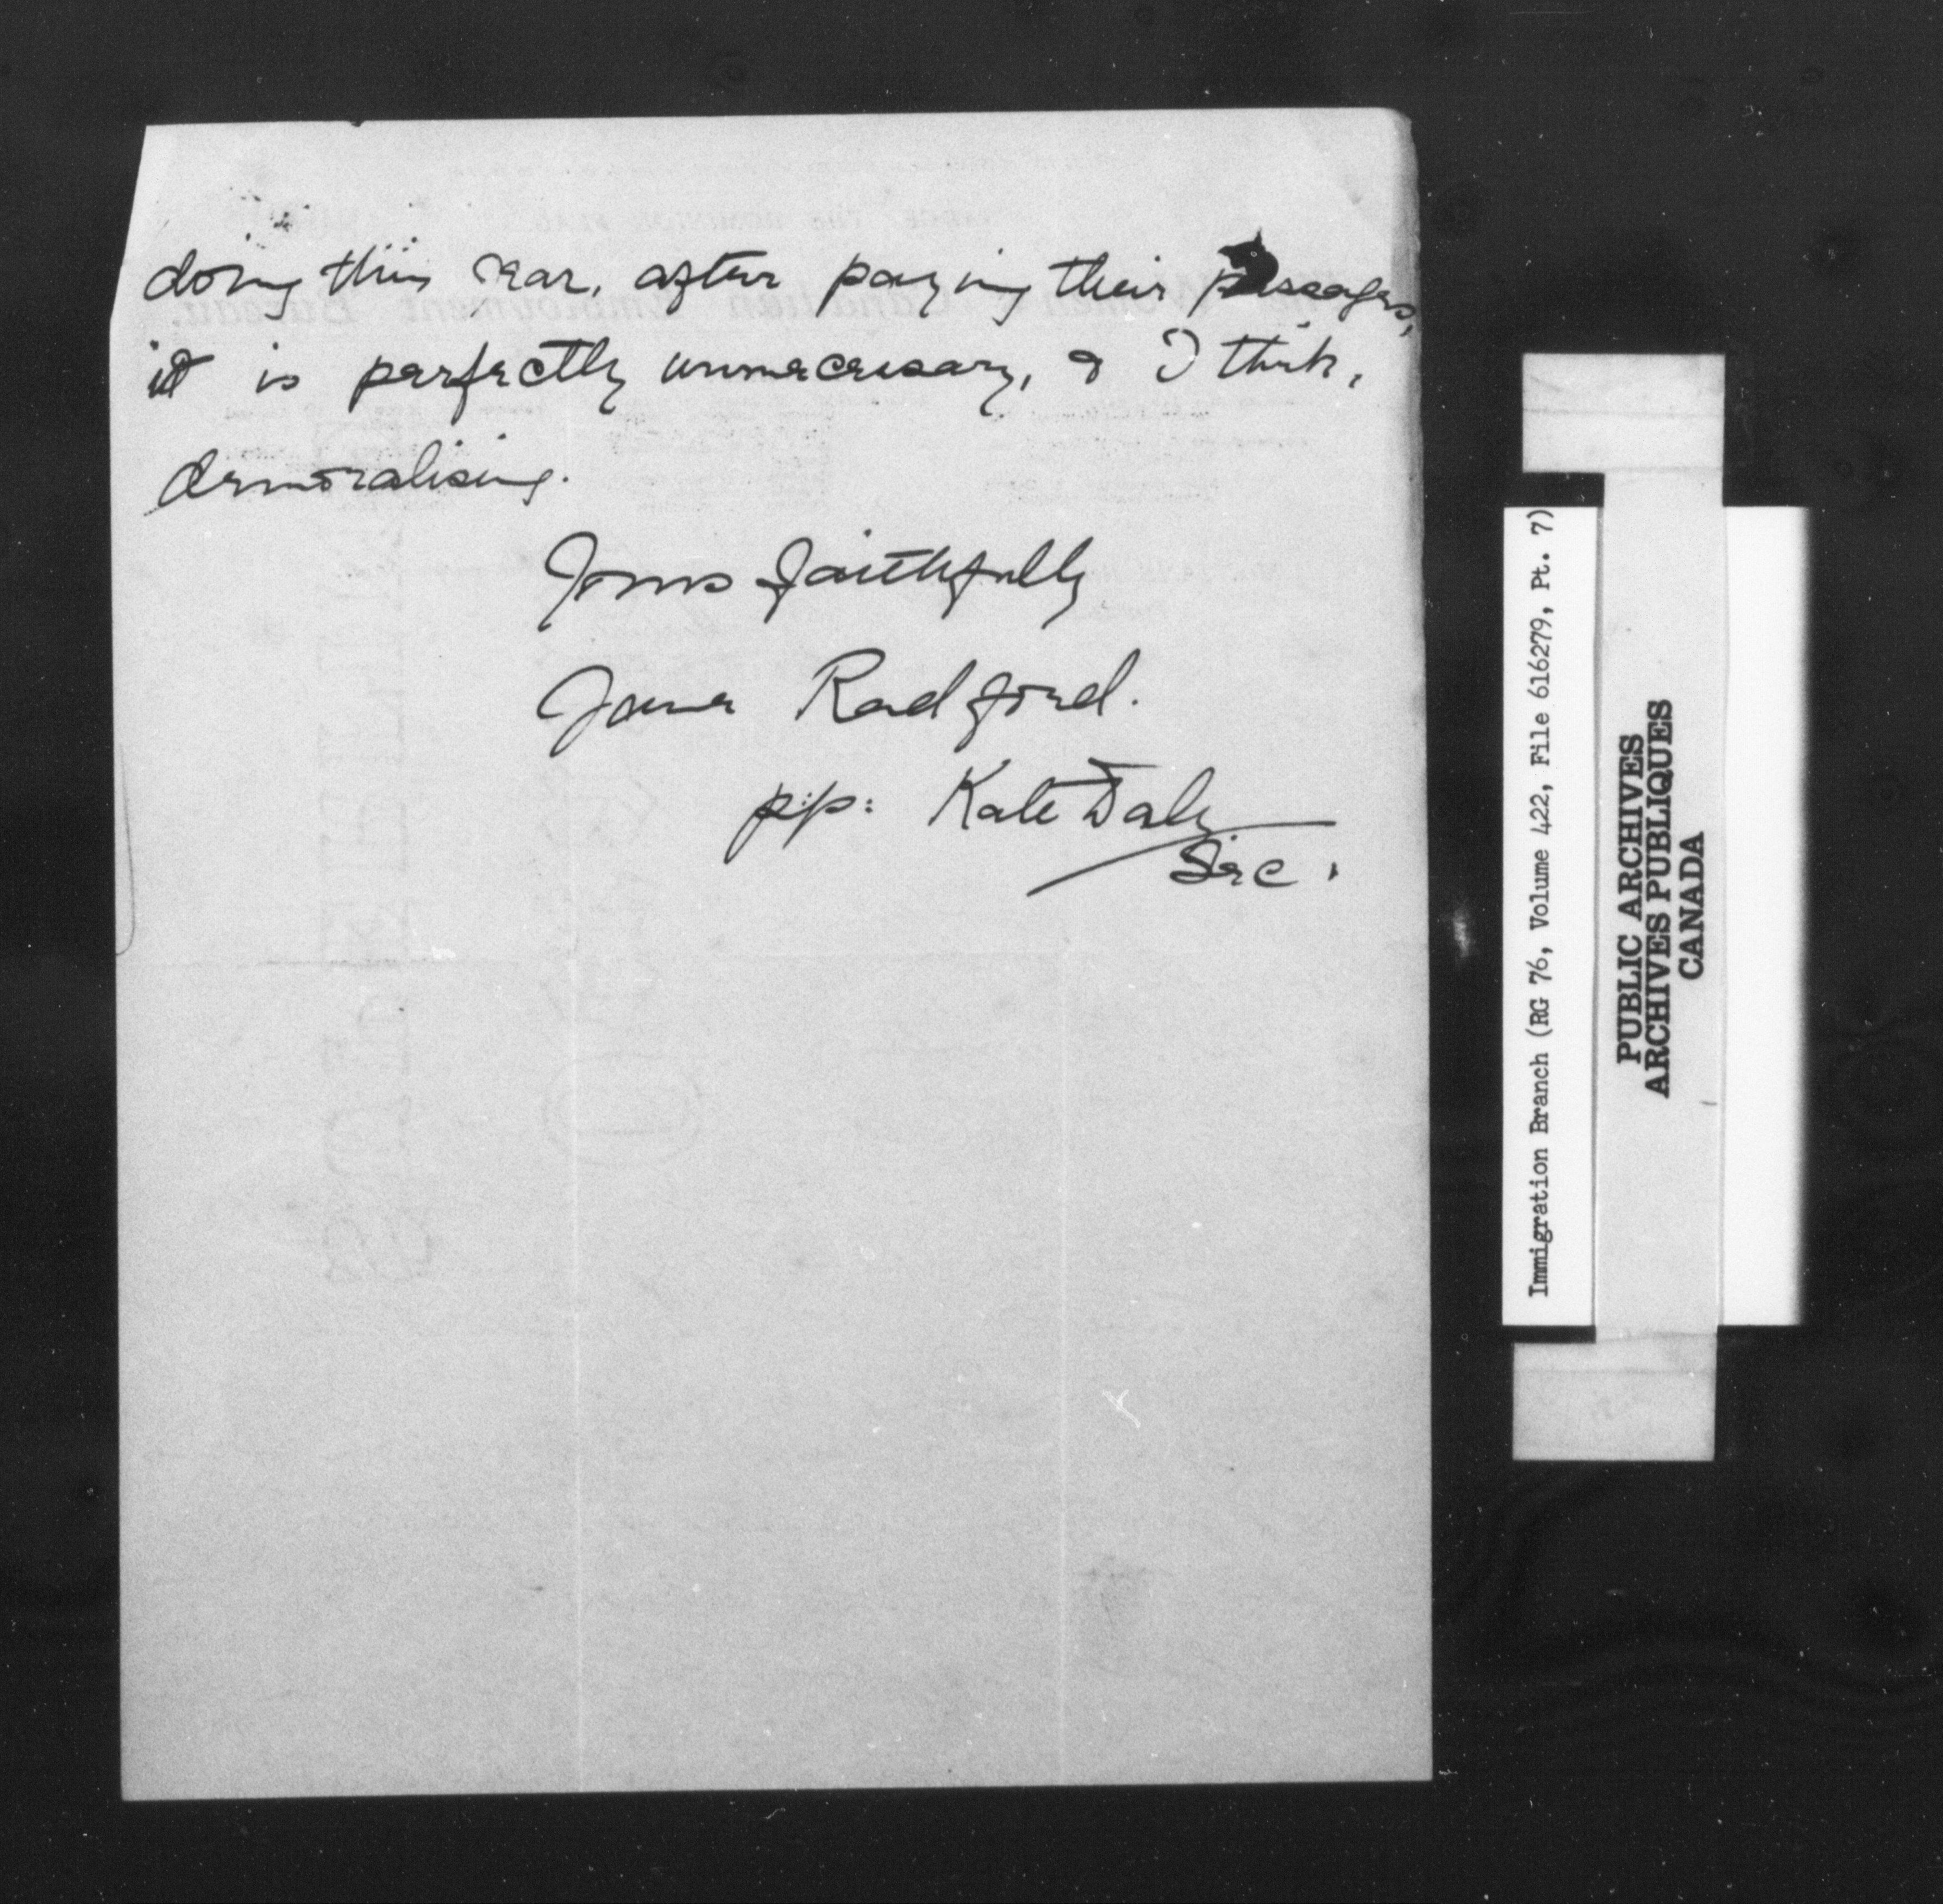 doing this year, after paying their passages,
it is perfectly unnecessary, & I think,
demoralising.
Yours faithfully
Jane Radford.
p.p: Kate Daly
Sec.
Immigration Branch (RG 76, Volume 422, File 616279, Pt. 7)
PUBLIC ARCHIVES
ARCHIVES PUBLIQUES
CANADA